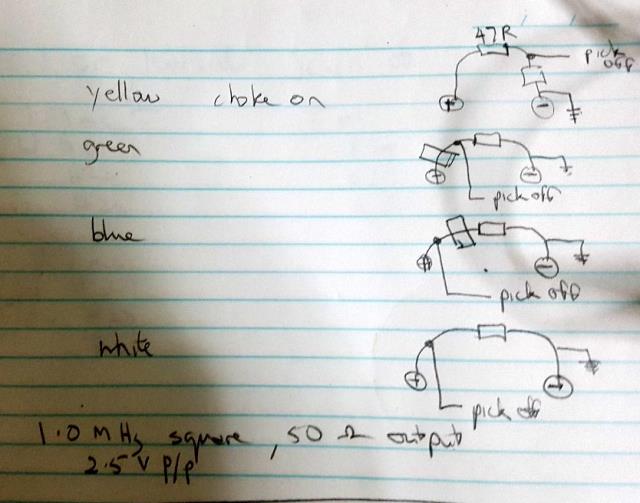 47R
pick
off
yellow choke on
+
-
green
+
-
pick off
blue
+
-
pick off
white
+
-
pick off
1.0 MHz square, 50 Ω output
2.5 V p/p